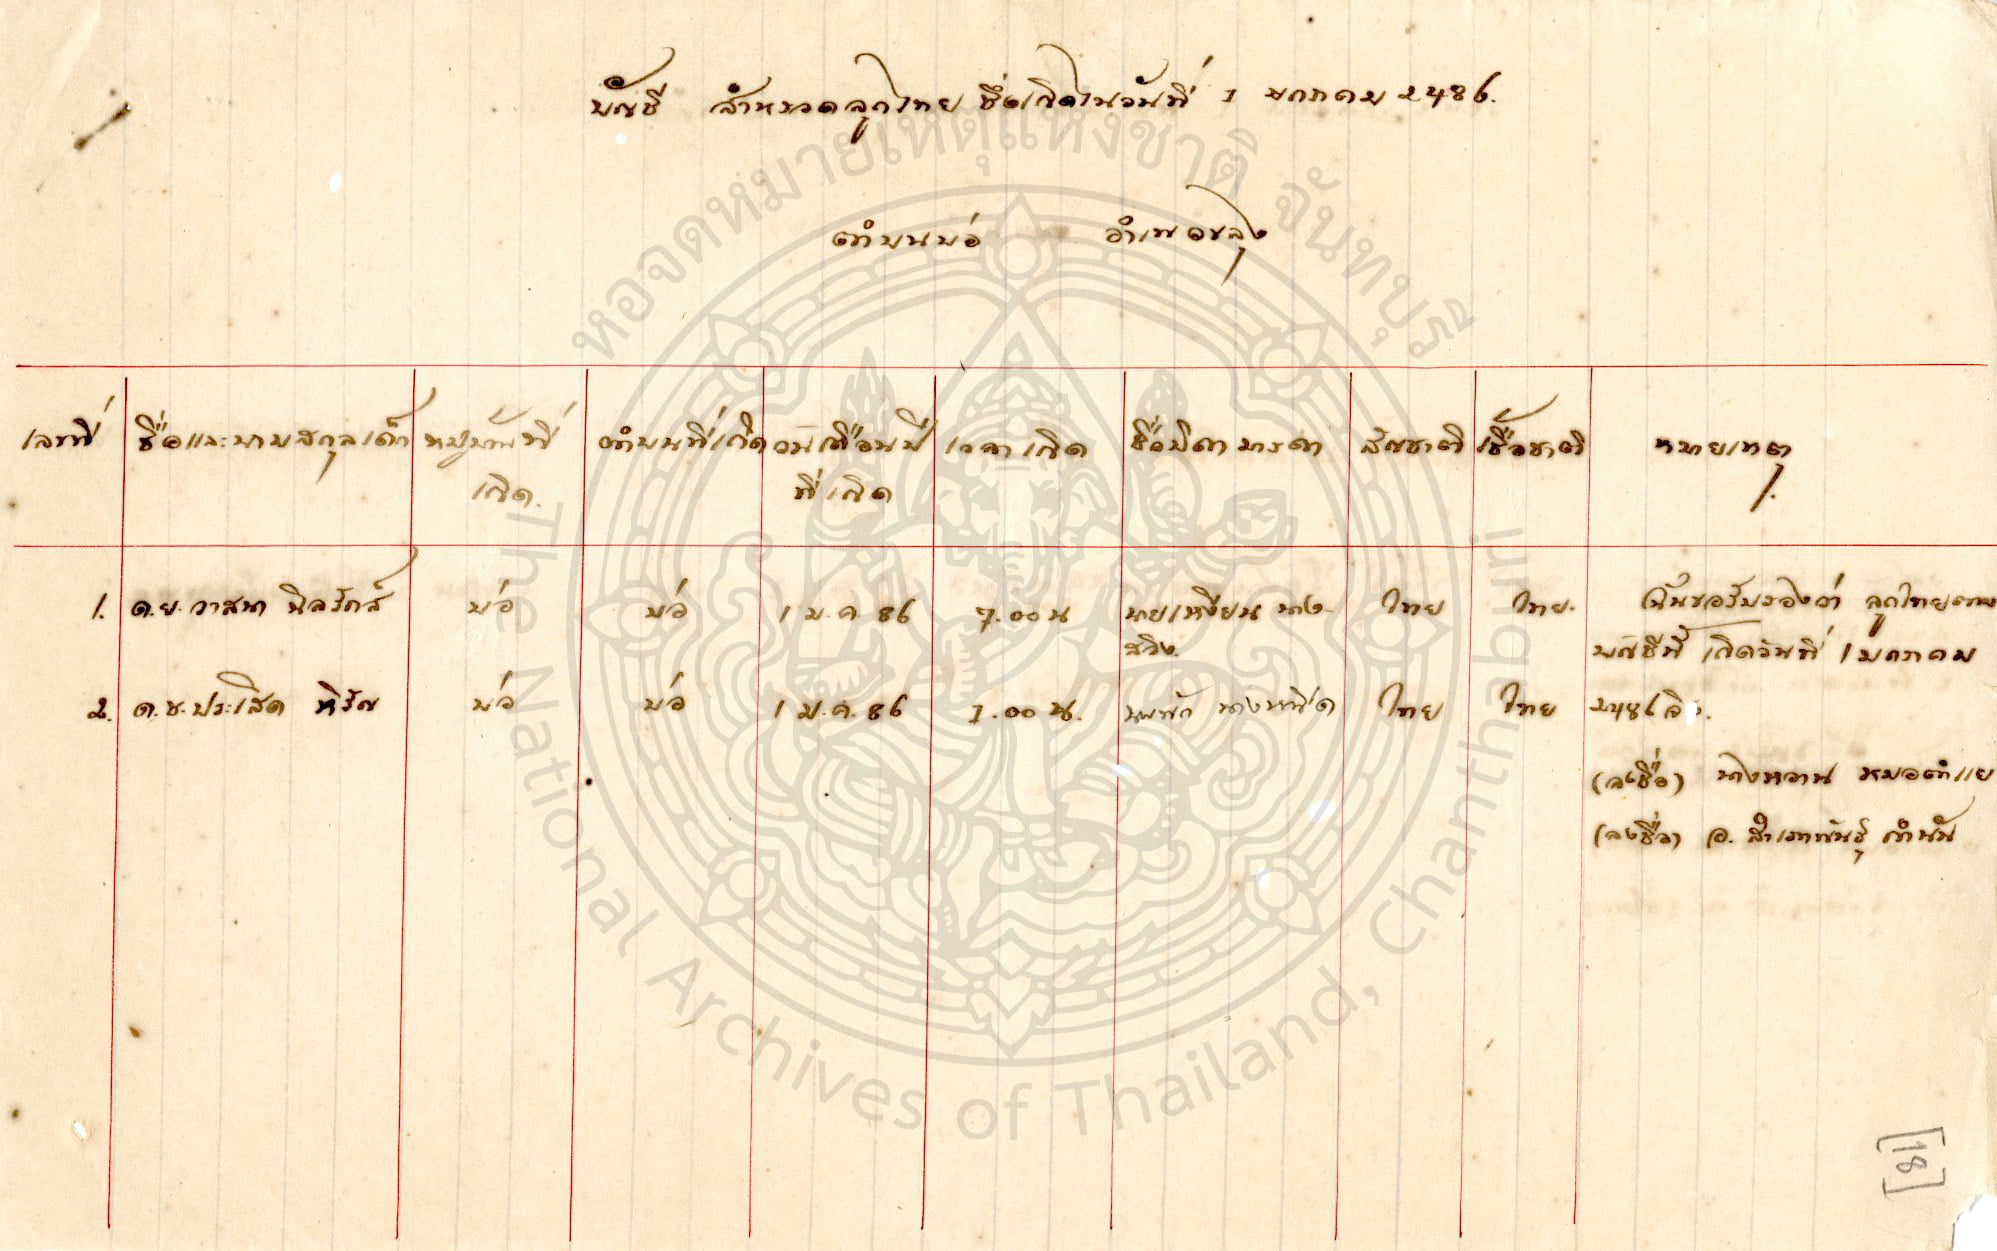 บัญชี สำหรวดลูกไทย ซึ่งเกิดในวันที่ 1 มกราคม 2486.
ตำบนบ่อ อำเพอขลุง
เลขที่ ชื่อและนามสกุลเด็ก หมู่บ้านที่เกิด. ตำบนที่เกิด วันเดือนปีที่เกิด เวลาเกิด ชื่อบิดา มารดา สัญชาติ เชื้อชาติ หมายเหตุ.
1. ด.ย. วาสนา นิลรักส์ บ่อ บ่อ 1 ม.ค. 86 7.00 น นายเหงียน นาง ไทย ไทย. ฉันขอรับรองว่า ลูกไทยตาม
บัญชีนี้ เกิดวันที่ 1 มกราคม
2. ด.ช. ประเสิด หิรัญ บ่อ บ่อ 1 ม.ค. 86 1.00 น. ไทย ไทย 2486
(ลงชื่อ) นางหวาน หมอตำแย
(ลงชื่อ) อ. สำเภาพันธุ์ กำนัน
[18]
หอจดหมายเหตุแห่งชาติ จันทบุรี
The National Archives of Thailand, Chanthaburi